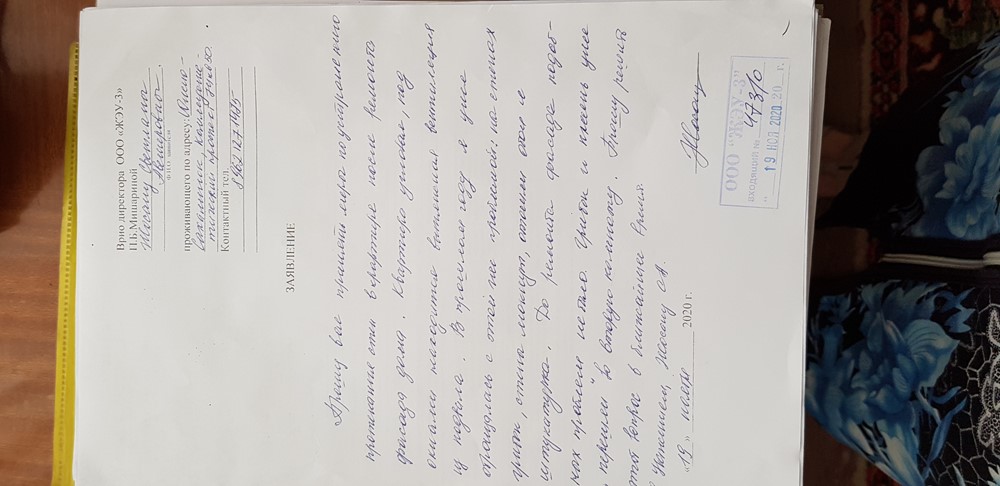 Врио директора ООО «ЖЭУ-3»
П.Б.Мишариной
Светлана
Ф.И.О. заявителя
проживающего по адресу:
Контактный тел.
ЗАЯВЛЕНИЕ
Прошу вас принять меры по устранению
протекание стен в квартире после ремонта
фасада дома. Квартира угловая, под
окнами находится вытяжная вентиляция
из подвала. В прошлом году я уже
обращалась с этой же проблемой: на стенах
грибок, стена мокнут, отошли обои и
штукатурка. До ремонта фасада подоб-
ных проблем не было. Грибок и плесень уже
перешли во вторую комнату. Прошу решить
этот вопрос в ближайшее время
С Уважением, С.А.
«19» июля 2020 г.
ООО "ЖЭУ-3"
ВХОДЯЩИЙ № 473/0
" 19 ИЮЛ 2020 20 г.